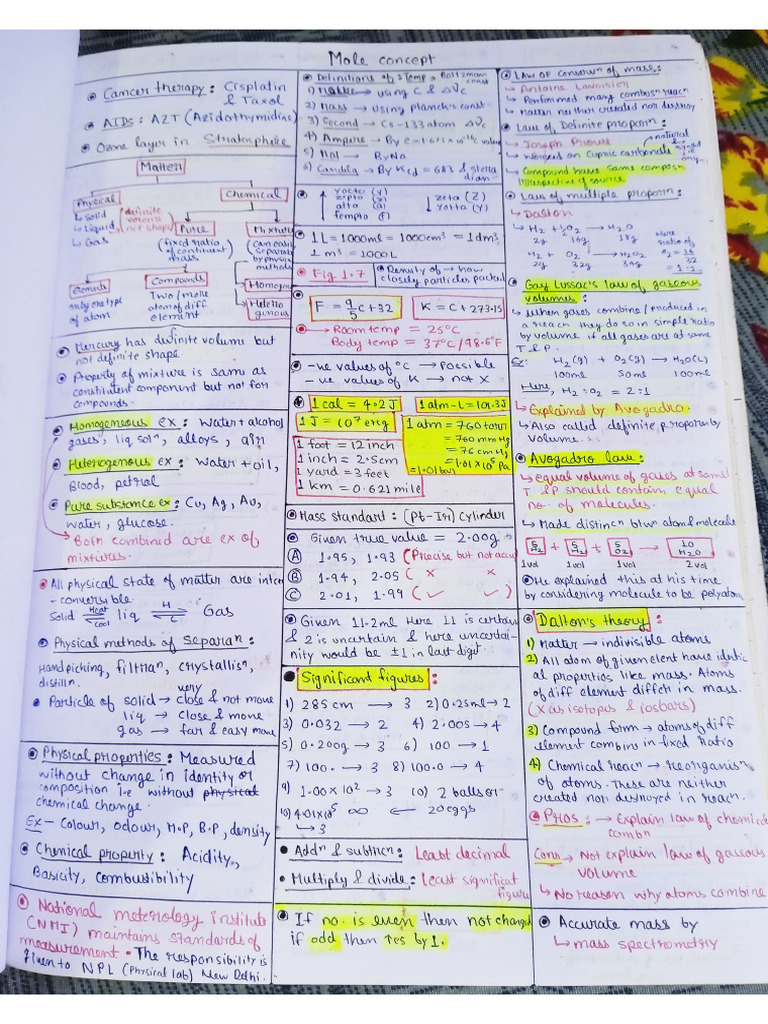 Mole concept
Cancer therapy : Cisplatin
& Taxol
AIDs : AZT (Azidothymidine
Ozone layer in Stratosphere
Matter
Physical
Chemical
↳ Solid
↳ Liquid
↳ Gas
definite
volume
not shape
Pure
(fixed ratio
of contituent
mass)
Mixture
(can easily
separate
by physic
methods)
Elements
only one type
of atom
Compounds
Two/more
atom of diff
element
Homogen
Hetero
genous
Mercury has definite volume but
not definite shape
Property of mixture is same as
constituent component but not for
compounds.
Homogeneous ex : Water + alcohol
gases, liq soln, alloys, air
Heterogenous ex : water + oil,
Blood, petrol
Pure substance ex : Cu, Ag, Au,
water, glucose.
Both combined are ex of
mixtures.
All physical state of matter are inter
- conversible
Solid Heat ⇌ Cool liq H ⇌ C Gas
Physical methods of separan :
Hand picking, filtran, crystallisn,
distilln.
Particle of solid → very close & not move
liq → close & move
gas → far & easy move
Physical properties : Measured
without change in identity or
composition i.e without physical
chemical change.
Ex - Colour, odour, M.P, B.P, density
Chemical property : Acidity,
Basicity, combustibility
National meterology institute
(NMI) maintains standards of
measurement • The responsibility is
given to NPL (Physical lab) New Delhi.
Definitions of : Temp → Boltzmann
const
1) Metre → using C & ΔVc
2) Mass → Using planck's const
3) Second → Cs-133 atom ΔVc
4) Ampere → By e
value
5) Mol → By NA
6) Candela → By Kcd = 683 & stera
dian
↑ yocto (y)
zepto (z)
atto (a)
femto (f)
zeta (Z)
↓ Yotta (Y)
1L = 1000ml = 1000cm³ = 1dm³
1 m³ = 1000L
Fig 1.7
Density of → how
closely particles packed
F = 9/5 C + 32
K = C + 273.15
Room temp = 25°C
Body temp = 37°C / 98.6°F
-ve values of °C → Possible
-ve values of K → not X
1 cal = 4.2 J
1 atm-L = 101.3J
1 J = 10⁷ erg
1 atm = 760 torr
= 760 mm Hg
= 76 cm Hg
= 1.01 x 10⁵ Pa
= 1.01 bar
1 foot = 12 inch
1 inch = 2.5cm
1 yard = 3 feet
1 km = 0.621 mile
Mass standard : (Pt-Ir) cylinder
Given true value = 2.00g
A 1.95, 1.93 (Precise but not accu
B 1.94, 2.05 ( × × )
C 2.01, 1.99 ( ✓ ✓ )
Given 11.2ml Here 11 is certain
& 2 is uncertain & here uncertai-
nity would be ±1 in last digit
Significant figures :
1) 285 cm → 3 2) 0.25ml → 2
3) 0.032 → 2 4) 2.005 → 4
5) 0.200g → 3 6) 100 → 1
7) 100. → 3 8) 100.0 → 4
9) 1.00 x 10² → 3 10) 2 balls or
10) 4.01x10⁵ ∞ ← 20 eggs
↳ 3
Addn & subtracn : Least decimal
Multiply & divide : Least significat
figure
If no. is even then not change
if odd then ↑es by 1.
LAW OF Conservn of mass :
↳ Antoine Lavoisier
↳ Performed many combusn reacn
↳ Matter neither created nor destroy
Law of Definite proporn :
↳ Joseph Prouse
natural
↳ Worked on cupric carbonate
↳ Compound have same composn
irrespective of source
Law of multiple proporn :
↳ Dalton
↳ H2 + ½O2 → H2O
2g 16g 18g
H2 + O2 → H2O2
2g 32g 34g
Here
ratio of
O2 = 16/32
= 1:2
Gay Lussac's law of gaseous
volumes :
↳ When gases combine/produced in
a reacn they do so in simple ratio
by volume if all gases are at same
T & P.
Ex : H2(g) + O2(g) → H2O(L)
100ml 50ml 100ml
Here, H2 : O2 = 2 : 1
↳ Explained by Avogadro.
↳ Also called definite proporn by
volume.
Avogadro law :
↳ equal volume of gases at same
T & P should contain equal
no. of molecules.
↳ Made distincn btwn atom & molecule
5 H2 + 5 H2 + 5 O2 → 10 H2O
1vol 1vol 1vol 2vol
He explained this at his time
by considering molecule to be polyatom
Dalton's theory :
1) Matter → indivisible atoms
2) All atom of given elent have identic
al properties like mass. Atoms
of diff element differ in mass.
(X as isotopes & isobars)
3) Compound form → atoms of diff
element combine in fixed Ratio
4) Chemical reacn → reorganisn
of atoms. These are neither
created nor destroyed in reacn.
Pros : → Explain law of chemical
combn
Cons → Not explain law of gaseous
volume
↳ No reason why atoms combine
Accurate mass by
↳ mass spectrometry